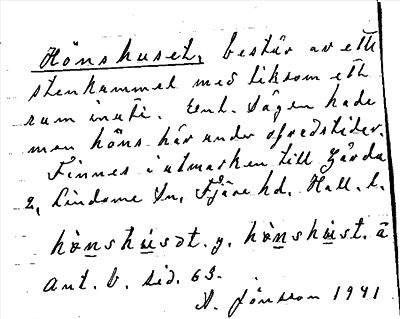 Hönshuset, består av ett
stenkummel med liksom ett
rum inuti. Enl. sägen hade
man höns här under ofredstider.
Finnes i utmarken till Gårda
2, Lindome Sn, Fjäre hd. Hall. l.
hönshúsət. y. hönshúst. ä
Ant. b. sid. 63.
A. Jönsson 1941